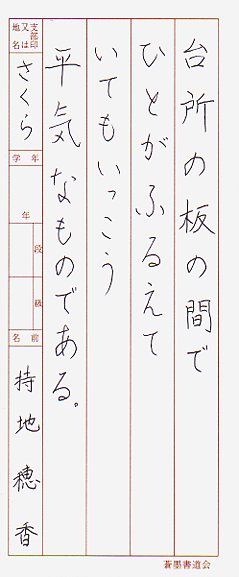 台所の板の間で
ひとがふるえて
いてもいっこう
平気なものである。
支部印
又は
地名
さくら
学年
年
段
級
名前
持地穂香
蒼墨書道会